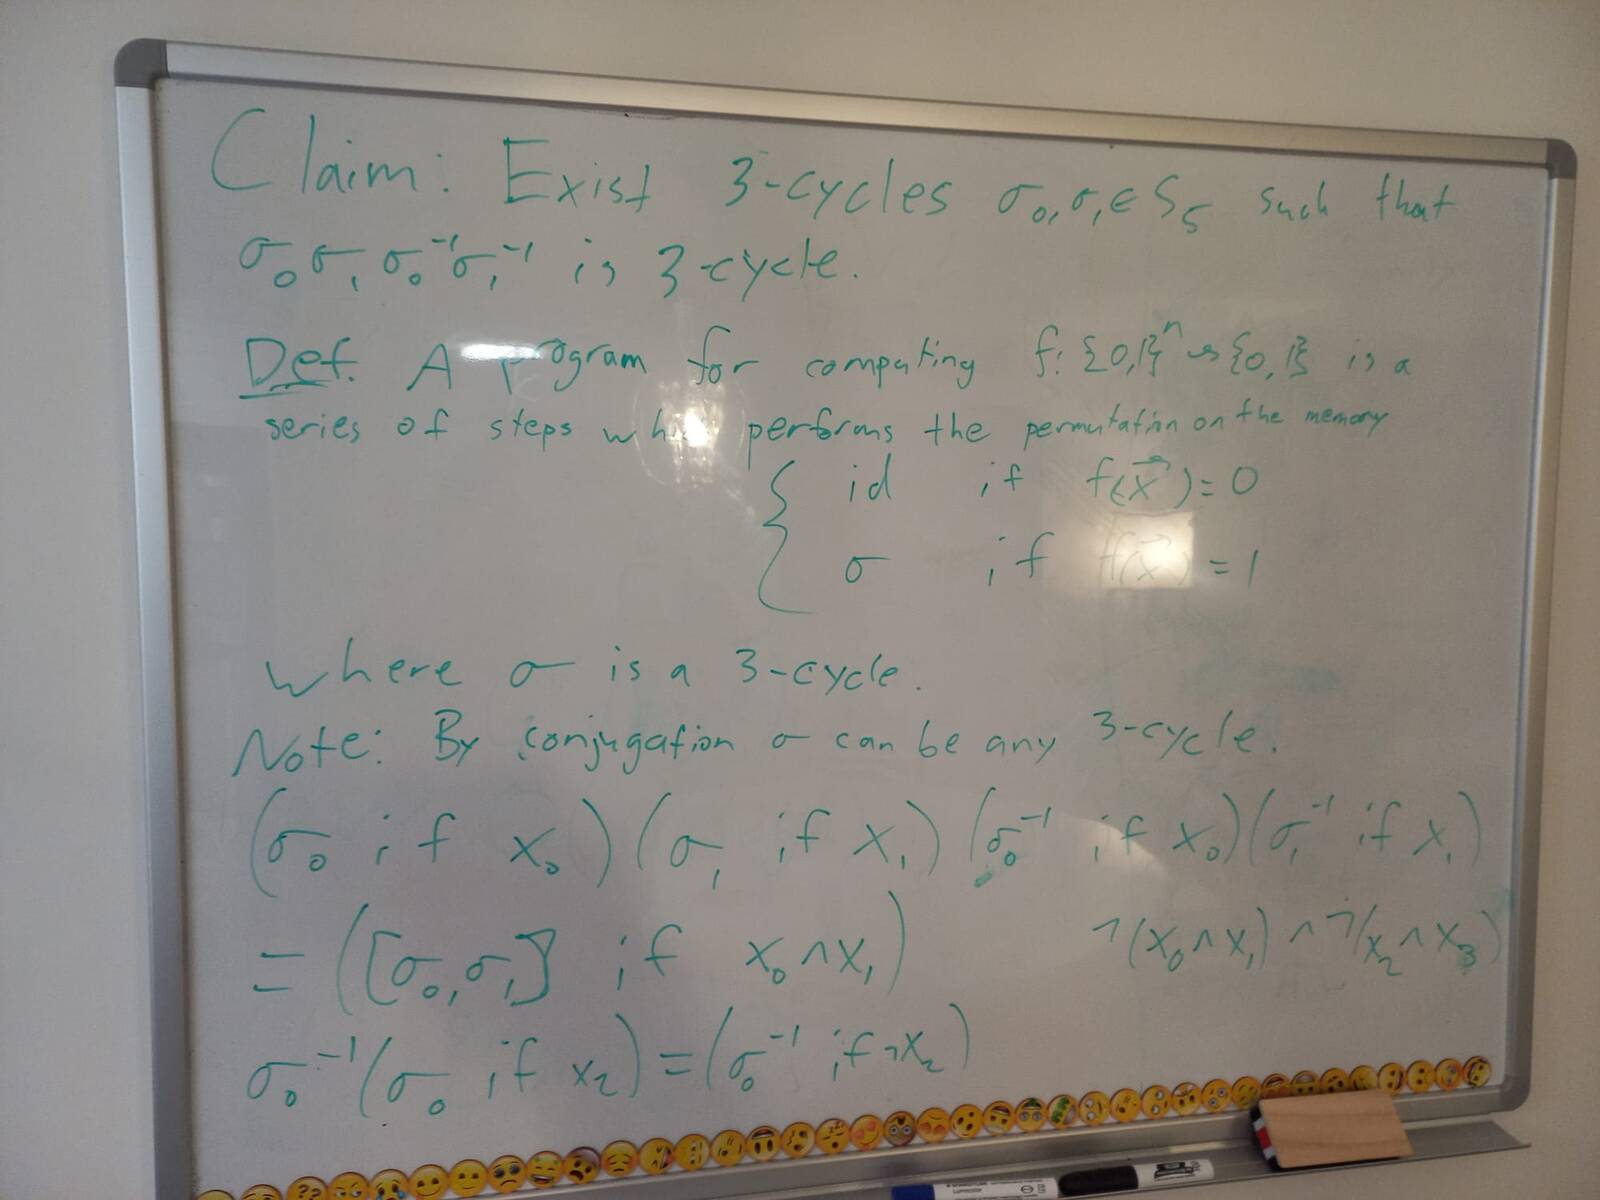 Claim: Exist 3-cycles σ₀,σ₁∈S₅ such that
σ₀σ₁σ₀⁻¹σ₁⁻¹ is 3-cycle.
Def. A program for computing f: {0,1}ⁿ→{0,1} is a
series of steps performs the permutation on the memory
{ id if f(x⃗)=0
σ if f(x⃗)=1
where σ is a 3-cycle.
Note: By conjugation σ can be any 3-cycle.
(σ₀ if x₀)(σ₁ if x₁)(σ₀⁻¹ if x₀)(σ₁⁻¹ if x₁)
= ([σ₀,σ₁] if x₀∧x₁) ¬(x₀∧x₁)∧¬(x₂∧x₃)
σ₀⁻¹(σ₀ if x₂)=(σ₀⁻¹ if ¬x₂)